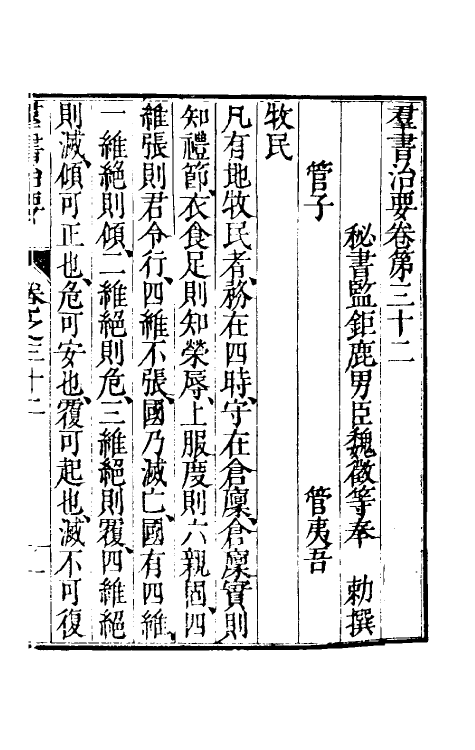 羣書治要卷第三十二
秘書監鉅鹿男臣魏徵等奉　勅撰
管子　管夷吾
牧民
凡有地牧民者、務在四時、守在倉廩、倉廩實則
知禮節、衣食足則知榮辱、上服度則六親固、四
維張則君令行、四維不張、國乃滅亡、國有四維、
一維絕則傾、二維絕則危、三維絕則覆、四維絕
則滅、傾可正也、危可安也、覆可起也、滅不可復
羣書治要　卷之三十二　一